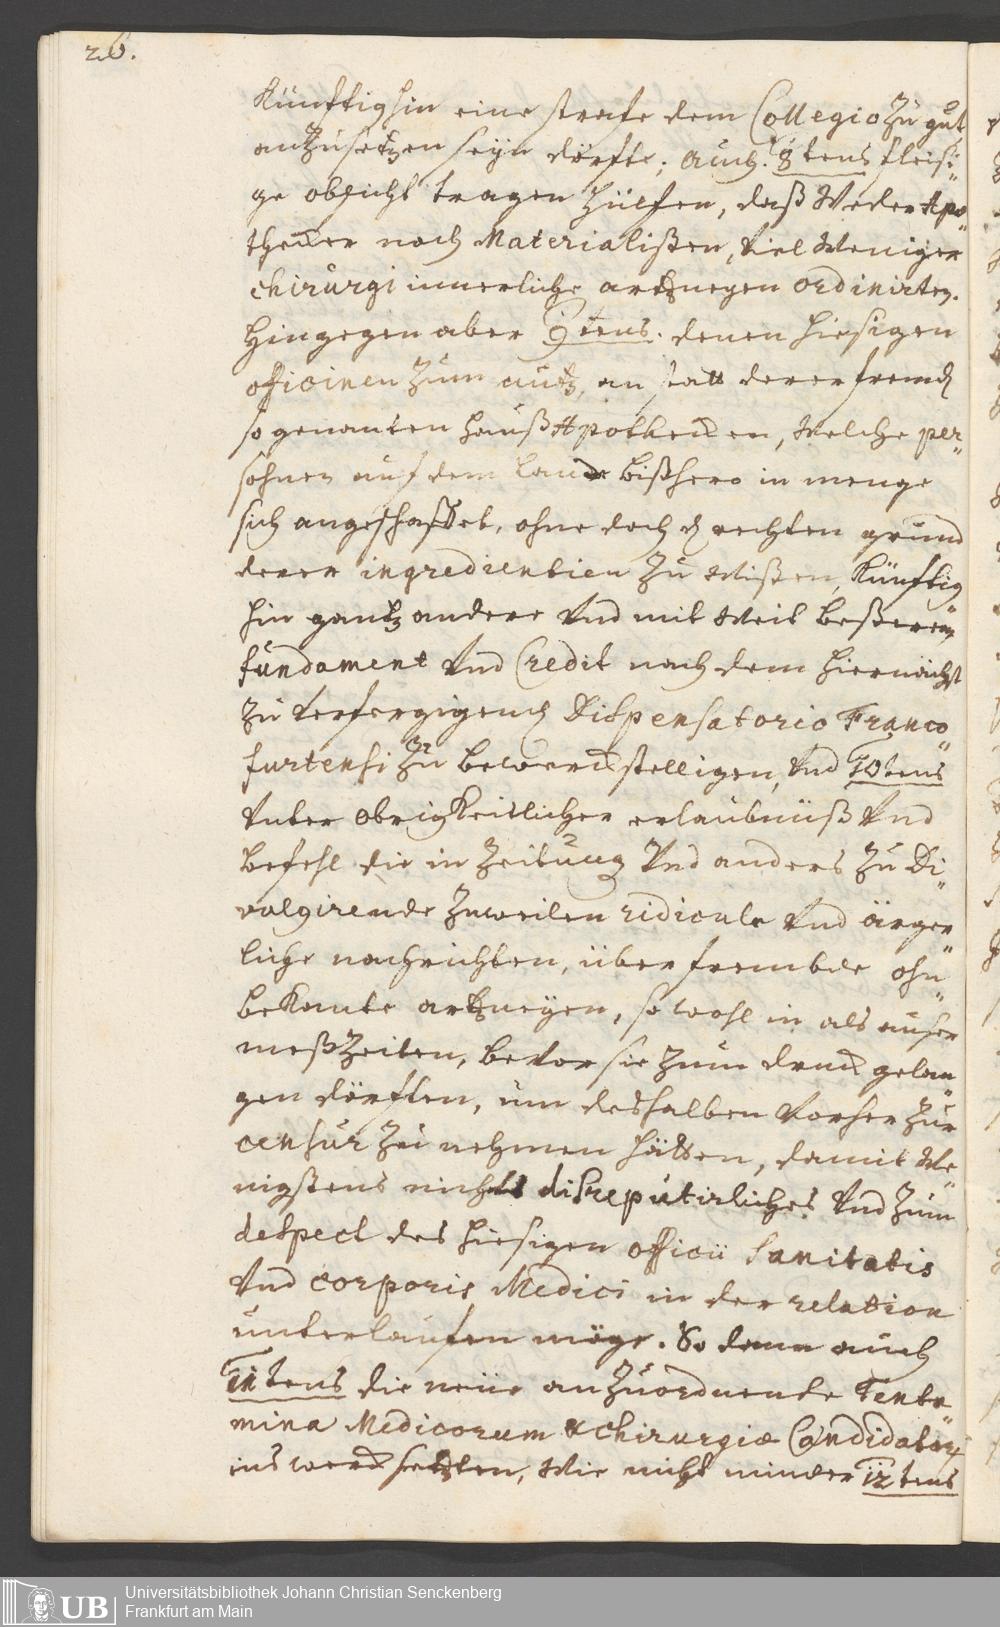 26.
Künfftighin eine strafe dem Collegio zu gut
anzusetzen seÿn dörfte; auch. 8tens fleisi„
ge obsicht tragen hülfen, daß weder Apo„
thecker noch Materialisten, viel weniger
chirurgi innerliche artzneyen ordinirten.
Hingegen aber 9tens. denen hiesigen
officinen zum nutz, an statt derer frembd
so genanten Hauß Apothecken, welche per„
sohnen auf dem Lande bißhero in menge
sich angeschaffet, ohne doch d rechten grund
derer ingredientien zu wißen, Künftig
hin gantz andere Vnd mit weit beßerem
fundament Vnd Credit nach dem hiernächst
zu verfergigend Dispensatorio Franco„
furtensi zu bewerckstelligen, Vnd 10tens
Vnter obrigkeitlicher erlaubnüß Vnd
befehl die in Zeitung Vnd anders zu Di„
vulgirende zuweilen ridicule Vnd ärger„
liche nachrichten, über frembde ohn„
bekante artzneÿen, so wohl in als auser
meßzeiten, bevor sie zum druck gelan„
gen dörften, um deshalben vorher zur
censur zu nehmen hätten, damit we„
nigstens nichts disreputirliches Vnd zum
despect des hiesigen officii Sanitatis
Vnd corporis Medici in der relation
unterlaufen möge. So dann auch
11tens die neüe anzuordnende Tenta„
mina Medicorum & chirurgiæ Candidator
ins werck setzten, wie nicht minder 12tens
UB Universitätsbibliothek Johann Christian Senckenberg
Frankfurt am Main